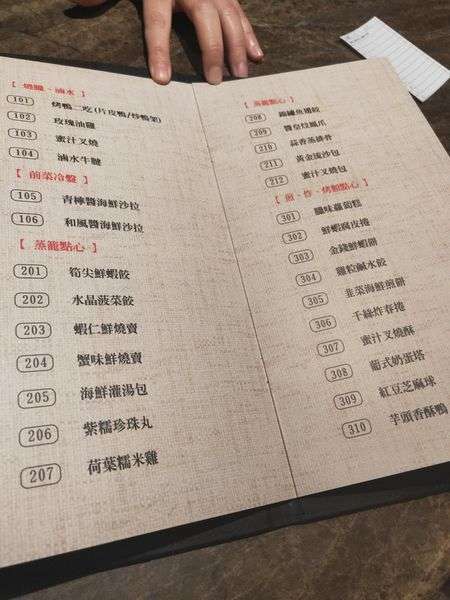 【 燒臘・滷水 】
101 烤鴨二吃(片皮鴨/炒鴨架)
102 玫瑰油雞
103 蜜汁叉燒
104 滷水牛腱
【 前菜冷盤 】
105 青檸醬海鮮沙拉
106 和風醬海鮮沙拉
【 蒸籠點心 】
201 筍尖鮮蝦餃
202 水晶菠菜餃
203 蝦仁鮮燒賣
204 蟹味鮮燒賣
205 海鮮灌湯包
206 紫糯珍珠丸
207 荷葉糯米雞
【 蒸籠點心 】
208 錦繡魚翅餃
209 醬皇炆鳳爪
210 蒜香蒸排骨
211 黃金流沙包
212 蜜汁叉燒包
【 煎、炸、烤類點心 】
301 臘味蘿蔔糕
302 鮮蝦腐皮捲
303 金錢鮮蝦餅
304 雞粒鹹水餃
305 韭菜海鮮煎餅
306 千絲炸春捲
307 蜜汁叉燒酥
308 葡式奶蛋塔
309 紅豆芝麻球
310 芋頭香酥鴨